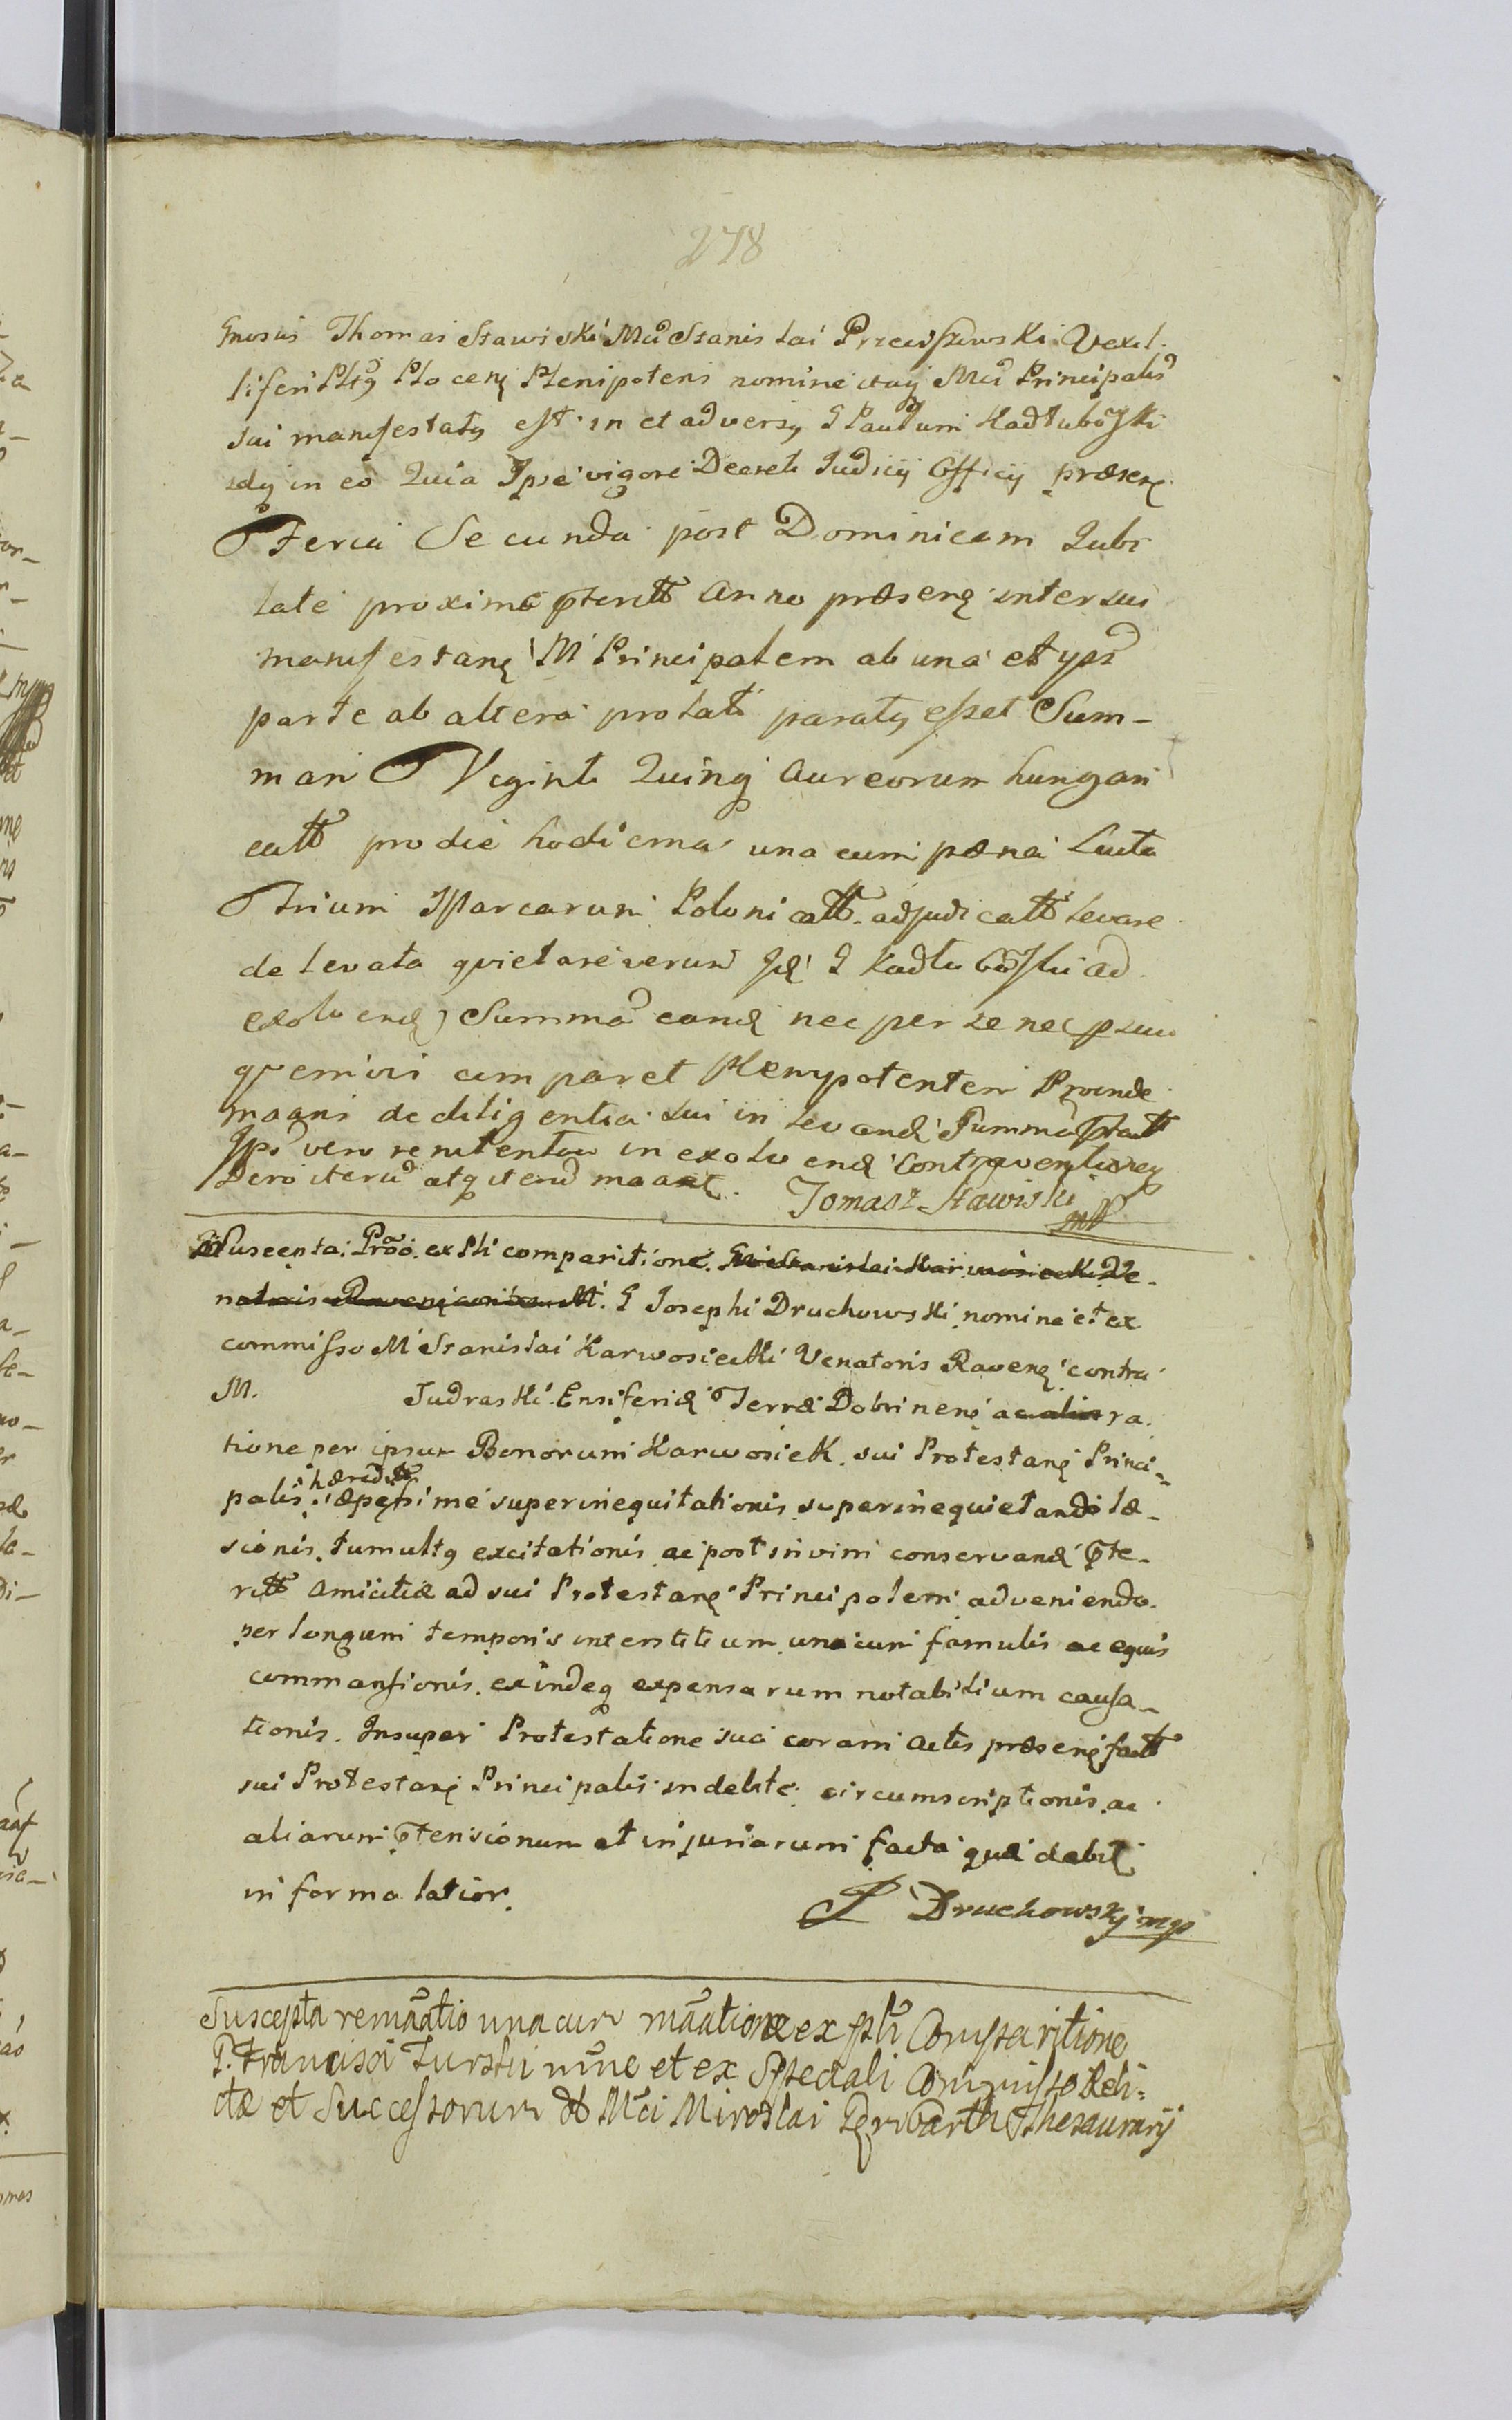 278
Gnosus Thomas Stawiski Mci Stanislai Przeciszewski Vexil-
liferi Pltg Plocenς Plenipotens nomine itaq Mci Principalis
sui manifestatq est in et adversq G Paulum Kadłuboski
idq in eo Quia Ipse vigore Decreti Judicij Officij præsenς
Feria Secunda post Dominicam Jubi
late proxime pteritt Anno præsenς inter sui
manifestanς M Principalem ab una et ypm
parte ab altera prolati paratq esset Sum-
mam Viginti Quinq Aureorum hungari
catt pro die hodierna una cum pæna Lucta
Trium Marcarum Polonicatt adjudicatt levare
de levata quietare verum Iδ G Kadłuboski ad
exolvenδ Summa eanδ nec per se nec p suu
quemvis comparet Plenypotentem Proinde
maani de diligentia sui in levanδ Summa Statt
Ips vero renitentia in exolvenδ Contraventureq
Dero iterum atq iterum maant. Tomasz Stawiski
mp
Suscepta Proo. ex Pli comparitione. Gni Stanislai Karwosiecki Ve-
natoris Ravenς contra M. G Josephi Druchowski nomine et ex
commisso M Stanislai Karwosiecki Venatoris Ravenς contra
M. Judraski Ensiferiδ Terræ Dobrinenς ac alias ra-
tione per ipsum Bonorum Karwosiek sui Protestanς Princi-
palis hæreditt sæpissime superinequitationis superinequietando læ-
sionis, tumultq excitationis ac post in vim conservanδ pte-
ritt Amicitiæ ad sui Protestanς Principalem adveniendo
per longum temporis interstitium una cum famulis ac equis
commansionis, exindeq expensarum notabilium causa-
tionis. Insuper Protestatione sua coram Actis præsenς fatt
sui Protestanς Principalis indebite circumscriptionis ac
aliarum ptensionum et injuriarum facta quæ dabit
in forma latior.
J Druchowskj mp
Suscepta remaatio una cum maatione ex pli Comparitione
G. Francisci Turski nne et ex Speciali Commisso Reli-
ctæ et Successorum ol Mci Miroslai Gerwarth Thesaurarij